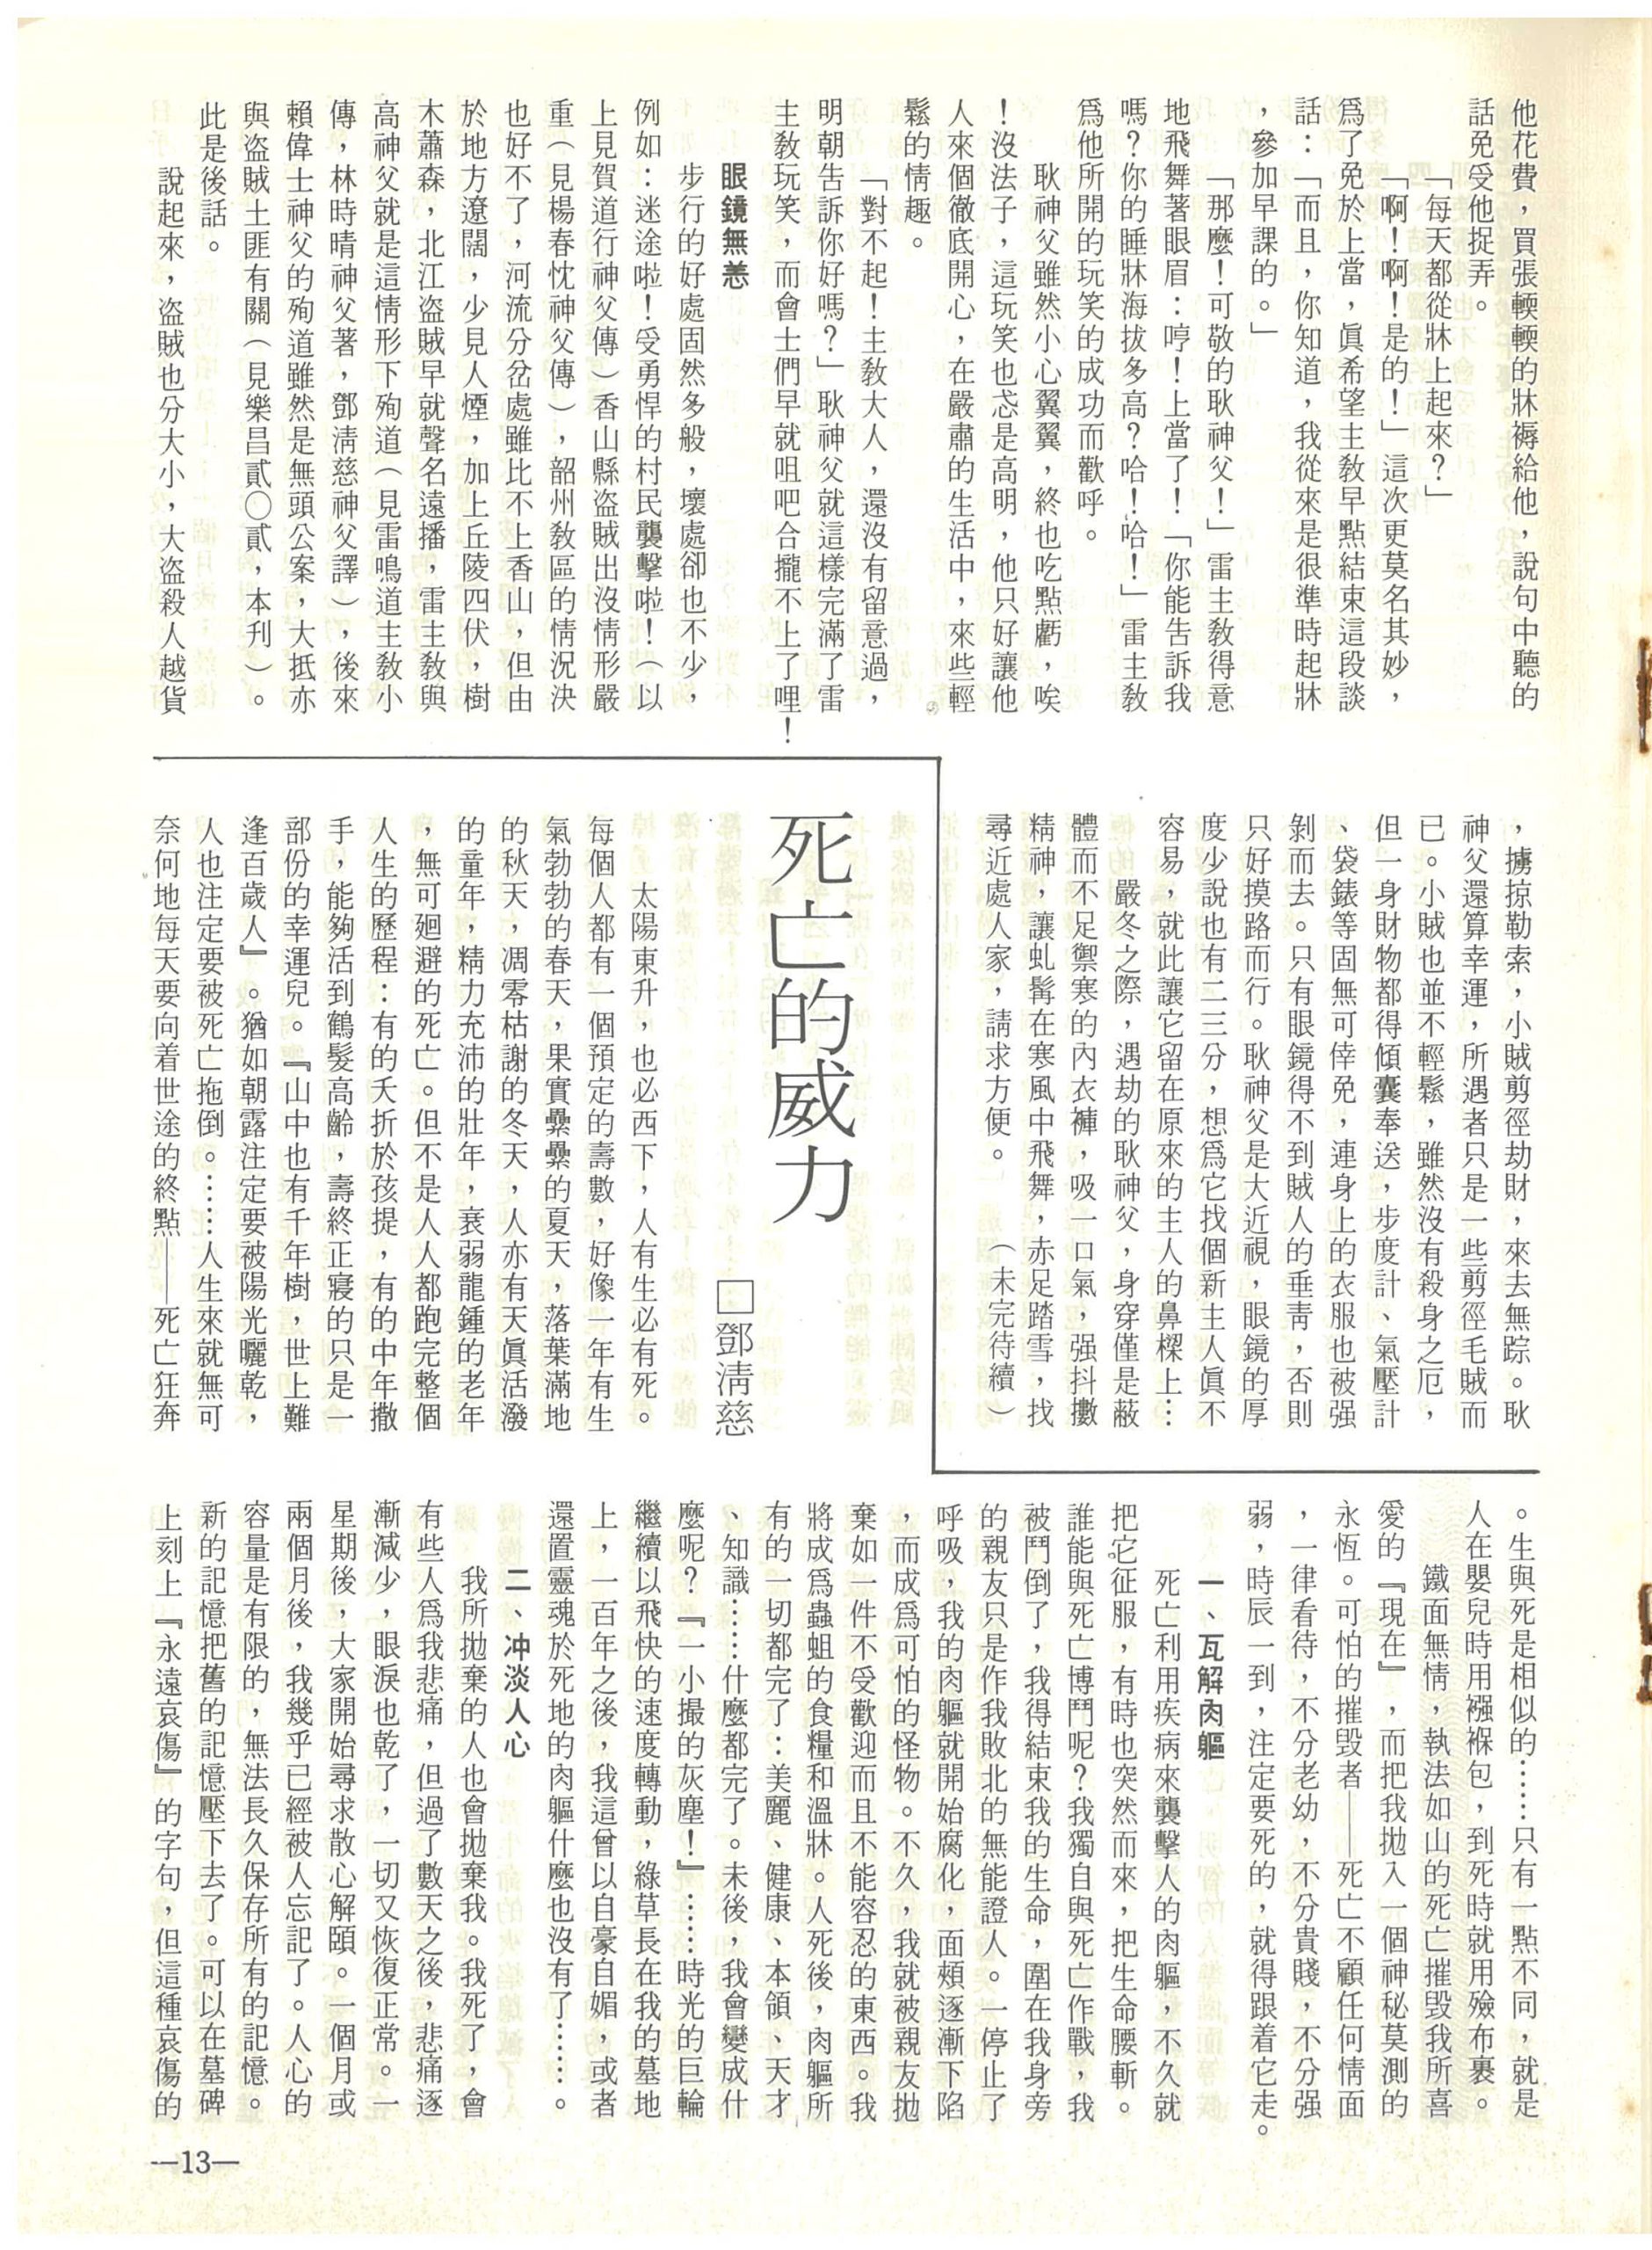 他花費，買張輭輭的牀褥給他，說句中聽的
話免受他捉弄。
「每天都從牀上起來？」
「啊！啊！是的！」這次更莫名其妙，
爲了免於上當，眞希望主敎早點結束這段談
話：「而且，你知道，我從來是很準時起牀
，參加早課的。」
「那麼！可敬的耿神父！」雷主敎得意
地飛舞著眼眉：哼！上當了！「你能告訴我
嗎？你的睡牀海拔多高？哈！哈！」雷主敎
爲他所開的玩笑的成功而歡呼。
耿神父雖然小心翼翼，終也吃點虧，唉
！沒法子，這玩笑也忒是高明，他只好讓他
人來個徹底開心，在嚴肅的生活中，來些輕
鬆的情趣。
「對不起！主敎大人，還沒有留意過，
明朝告訴你好嗎？」耿神父就這樣完滿了雷
主敎玩笑，而會士們早就咀吧合攏不上了哩！
眼鏡無恙
步行的好處固然多般，壞處卻也不少，
例如：迷途啦！受勇悍的村民襲擊啦！（以
上見賀道行神父傳）香山縣盜賊出沒情形嚴
重（見楊春忱神父傳），韶州敎區的情況決
也好不了，河流分岔處雖比不上香山，但由
於地方遼闊，少見人煙，加上丘陵四伏，樹
木蕭森，北江盜賊早就聲名遠播，雷主敎與
高神父就是這情形下殉道（見雷鳴道主敎小
傳，林時晴神父著，鄧淸慈神父譯），後來
賴偉士神父的殉道雖然是無頭公案，大抵亦
與盜賊土匪有關（見樂昌貳〇貳，本利）。
此是後話。
說起來，盜賊也分大小，大盜殺人越貨
，擄掠勒索，小賊剪徑劫財，來去無踪。耿
神父還算幸運，所遇者只是一些剪徑毛賊而
已。小賊也並不輕鬆，雖然沒有殺身之厄，
但一身財物都得傾囊奉送，步度計、氣壓計
、袋錶等固無可倖免，連身上的衣服也被强
剝而去。只有眼鏡得不到賊人的垂靑，否則
只好摸路而行。耿神父是大近視，眼鏡的厚
度少說也有二三分，想爲它找個新主人眞不
容易，就此讓它留在原來的主人的鼻樑上…
嚴冬之際，遇劫的耿神父，身穿僅是蔽
體而不足禦寒的內衣褲，吸一口氣，强抖擻
精神，讓虬髯在寒風中飛舞，赤足踏雪，找
尋近處人家，請求方便。　（未完待續）
死亡的威力
□鄧淸慈
太陽東升，也必西下，人有生必有死。
每個人都有一個預定的壽數，好像一年有生
氣勃勃的春天，果實纍纍的夏天，落葉滿地
的秋天，凋零枯謝的冬天，人亦有天眞活潑
的童年，精力充沛的壯年，衰弱龍鍾的老年
，無可廻避的死亡。但不是人人都跑完整個
人生的歷程：有的夭折於孩提，有的中年撒
手，能夠活到鶴髮高齡，壽終正寢的只是一
部份的幸運兒。『山中也有千年樹，世上難
逢百歲人』。猶如朝露注定要被陽光曬乾，
人也注定要被死亡拖倒。……人生來就無可
奈何地每天要向着世途的終點——死亡狂奔
。生與死是相似的……只有一點不同，就是
人在嬰兒時用襁褓包，到死時就用殮布裹。
鐵面無情，執法如山的死亡摧毀我所喜
愛的『現在』，而把我拋入一個神秘莫測的
永恆。可怕的摧毀者——死亡不顧任何情面
，一律看待，不分老幼，不分貴賤，不分强
弱，時辰一到，注定要死的，就得跟着它走。
一、瓦解肉軀
死亡利用疾病來襲擊人的肉軀，不久就
把它征服，有時也突然而來，把生命腰斬。
誰能與死亡博鬥呢？我獨自與死亡作戰，我
被鬥倒了，我得結束我的生命，圍在我身旁
的親友只是作我敗北的無能證人。一停止了
呼吸，我的肉軀就開始腐化，面頰逐漸下陷
，而成爲可怕的怪物。不久，我就被親友拋
棄如一件不受歡迎而且不能容忍的東西。我
將成爲蟲蛆的食糧和溫牀。人死後，肉軀所
有的一切都完了：美麗、健康、本領、天才
、知識……什麼都完了。未後，我會變成什
麼呢？『一小撮的灰塵！』……時光的巨輪
繼續以飛快的速度轉動，綠草長在我的墓地
上，一百年之後，我這曾以自豪自媚，或者
還置靈魂於死地的肉軀什麼也沒有了……。
二、冲淡人心
我所拋棄的人也會拋棄我。我死了，會
有些人爲我悲痛，但過了數天之後，悲痛逐
漸減少，眼淚也乾了，一切又恢復正常。一
星期後，大家開始尋求散心解頤。一個月或
兩個月後，我幾乎已經被人忘記了。人心的
容量是有限的，無法長久保存所有的記憶。
新的記憶把舊的記憶壓下去了。可以在墓碑
上刻上『永遠哀傷』的字句，但這種哀傷的
—13—